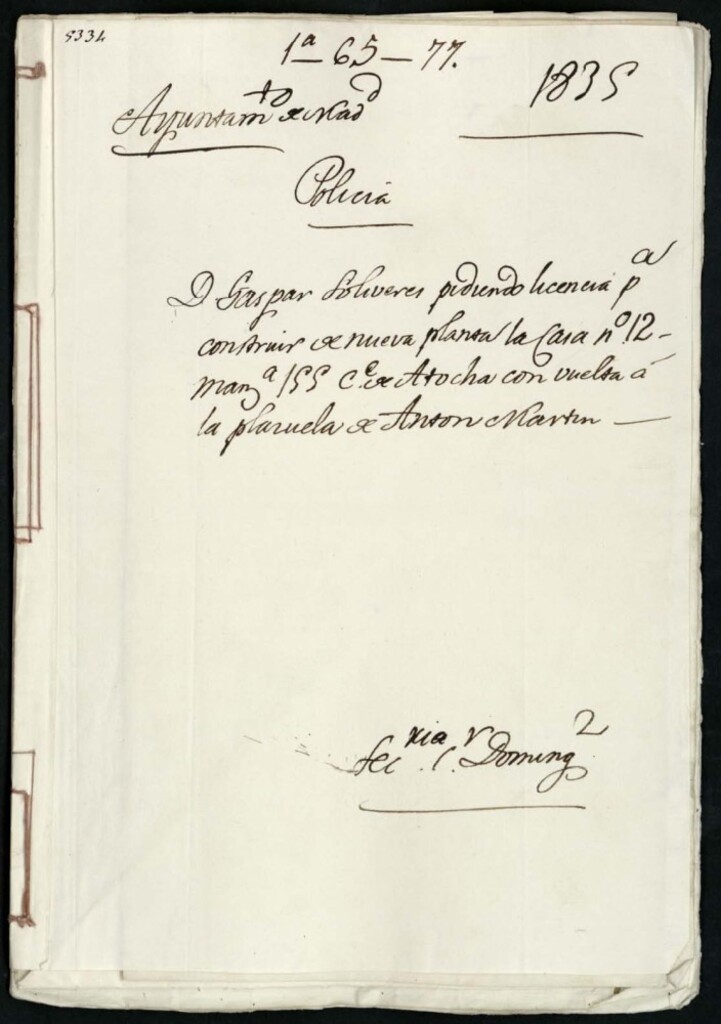 5334
1ª 65-77.
1835
Ayuntam.to de Mad.d
Policia
D Gaspar Soliveres pidiendo licencia p.a
construir de nueva planta la Casa n.º 12-
manz.a 155 C.e de Atocha con vuelta á
la plazuela de Anton Martin —
Sec.ria S.r Doming.z